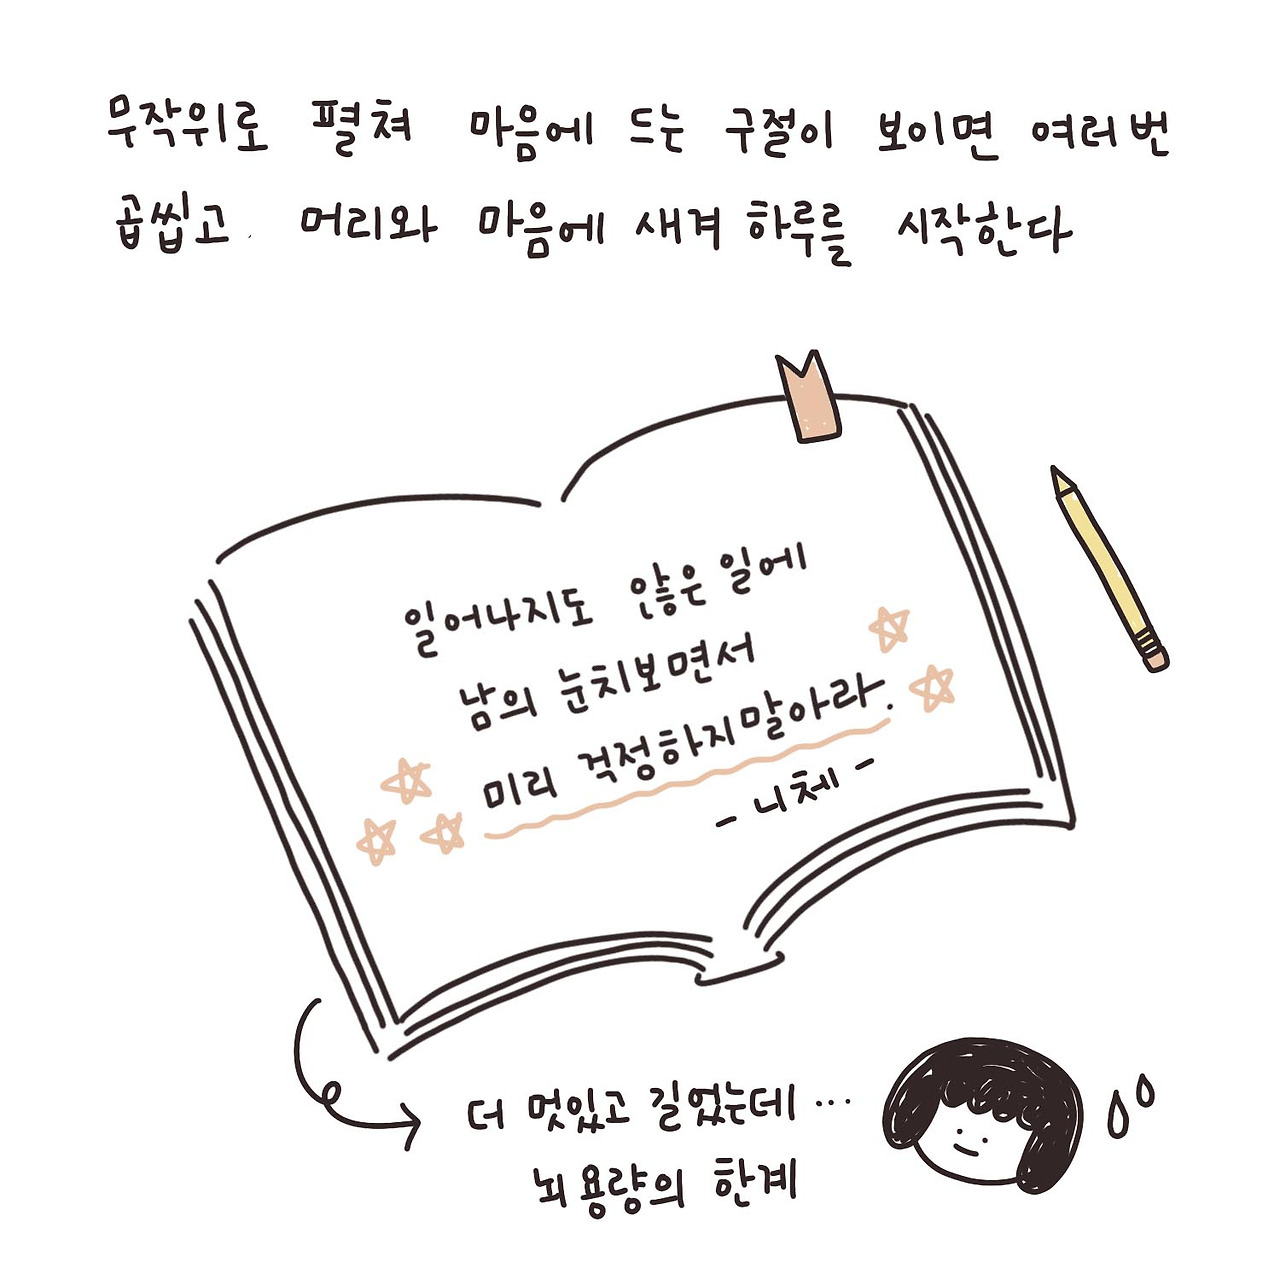 무작위로 펼쳐 마음에 드는 구절이 보이면 여러번
곱씹고 머리와 마음에 새겨 하루를 시작한다
일어나지도 않은 일에
남의 눈치보면서
미리 걱정하지말아라.
- 니체 -
더 멋있고 길었는데...
뇌용량의 한계